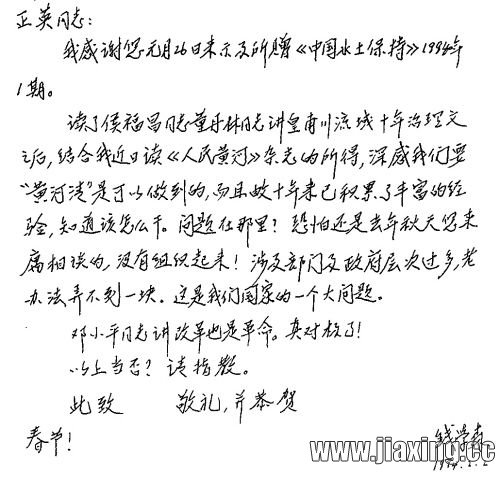 正英同志：
我感谢您元月26日来示及所赠《中国水土保持》1994年
1期。
读了侯福昌同志董丹林同志讲皇甫川流域十年治理文
之后，结合我近日读《人民黄河》杂志的所得，深感我们要
“黄河清”是可以做到的，而且数十年来已积累了丰富的经
验，知道该怎么干。问题在那里？恐怕还是去年秋天您来
腐相谈的，没有组织起来！涉及部门及政府层次过多，老
办法弄不到一块。这是我们国家的一个大问题。
邓小平同志讲改革也是革命。真对极了！
以上当否？请指教。
此致 敬礼，并恭贺
春节！
钱学森
1994.2.2
www.jiaxing.cc